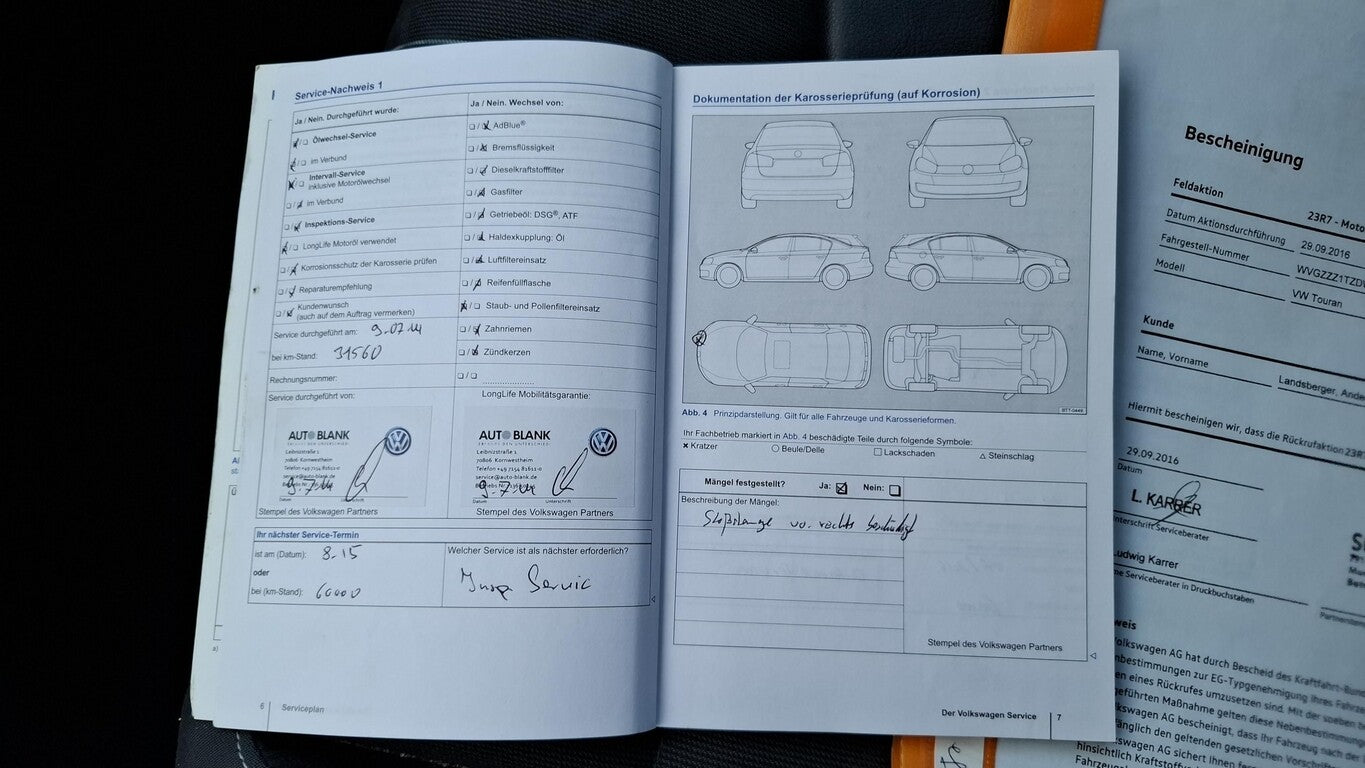 Service-Nachweis 1
Ja / Nein. Durchgeführt wurde:
Ölwechsel-Service
im Verbund
Intervall-Service
inklusive Motorölwechsel
im Verbund
Inspektions-Service
LongLife Motoröl verwendet
Korrosionsschutz der Karosserie prüfen
Reparaturempfehlung
Kundenwunsch
(auch auf dem Auftrag vermerken)
Service durchgeführt am: 9.07.14
bei km-Stand: 31560
Rechnungsnummer:
Service durchgeführt von:
AUTO BLANK
Leibnizstraße 1
70806 Kornwestheim
Telefon +49 7154 81611-0
service@auto-blank.de
9.7.14
Datum Unterschrift
Stempel des Volkswagen Partners
Ja / Nein. Wechsel von:
AdBlue®
Bremsflüssigkeit
Dieselkraftstofffilter
Gasfilter
Getriebeöl: DSG®, ATF
Haldexkupplung: Öl
Luftfiltereinsatz
Reifenfüllflasche
Staub- und Pollenfiltereinsatz
Zahnriemen
Zündkerzen
LongLife Mobilitätsgarantie:
AUTO BLANK
Leibnizstraße 1
70806 Kornwestheim
Telefon +49 7154 81611-0
service@auto-blank.de
9.7.14
Datum Unterschrift
Stempel des Volkswagen Partners
Ihr nächster Service-Termin
ist am (Datum): 8.15
oder
bei (km-Stand): 60000
Welcher Service ist als nächster erforderlich?
Insp Service
6 Serviceplan
Dokumentation der Karosserieprüfung (auf Korrosion)
BTT-0449
Abb. 4 Prinzipdarstellung. Gilt für alle Fahrzeuge und Karosserieformen.
Ihr Fachbetrieb markiert in Abb. 4 beschädigte Teile durch folgende Symbole:
Kratzer
Beule/Delle
Lackschaden
Steinschlag
Mängel festgestellt? Ja: Nein:
Beschreibung der Mängel:
Stoßstange vo. rechts beschädigt
Stempel des Volkswagen Partners
Der Volkswagen Service 7
Bescheinigung
Feldaktion
23R7 - Moto
Datum Aktionsdurchführung 29.09.2016
Fahrgestell-Nummer WVGZZZ1TZD
Modell VW Touran
Kunde
Name, Vorname Landsberger, Andre
Hiermit bescheinigen wir, dass die Rückrufaktion 23R7
29.09.2016
Datum
L. KARRER
nterschrift Serviceberater
udwig Karrer
me Serviceberater in Druckbuchstaben
weis
olkswagen AG hat durch Bescheid des Kraftfahrt-Bun
nbestimmungen zur EG-Typgenehmigung ihres Fahrz
en eines Rückrufes umzusetzen sind. Mit der soeben
geführten Maßnahme gelten diese Nebenbestimmung
kswagen AG bescheinigt, dass Ihr Fahrzeug nach der
änglich den geltenden gesetzlichen Vorschriften
swagen AG sichert Ihnen
hinsichtlich Kraftstoffv
Fahrzeuge